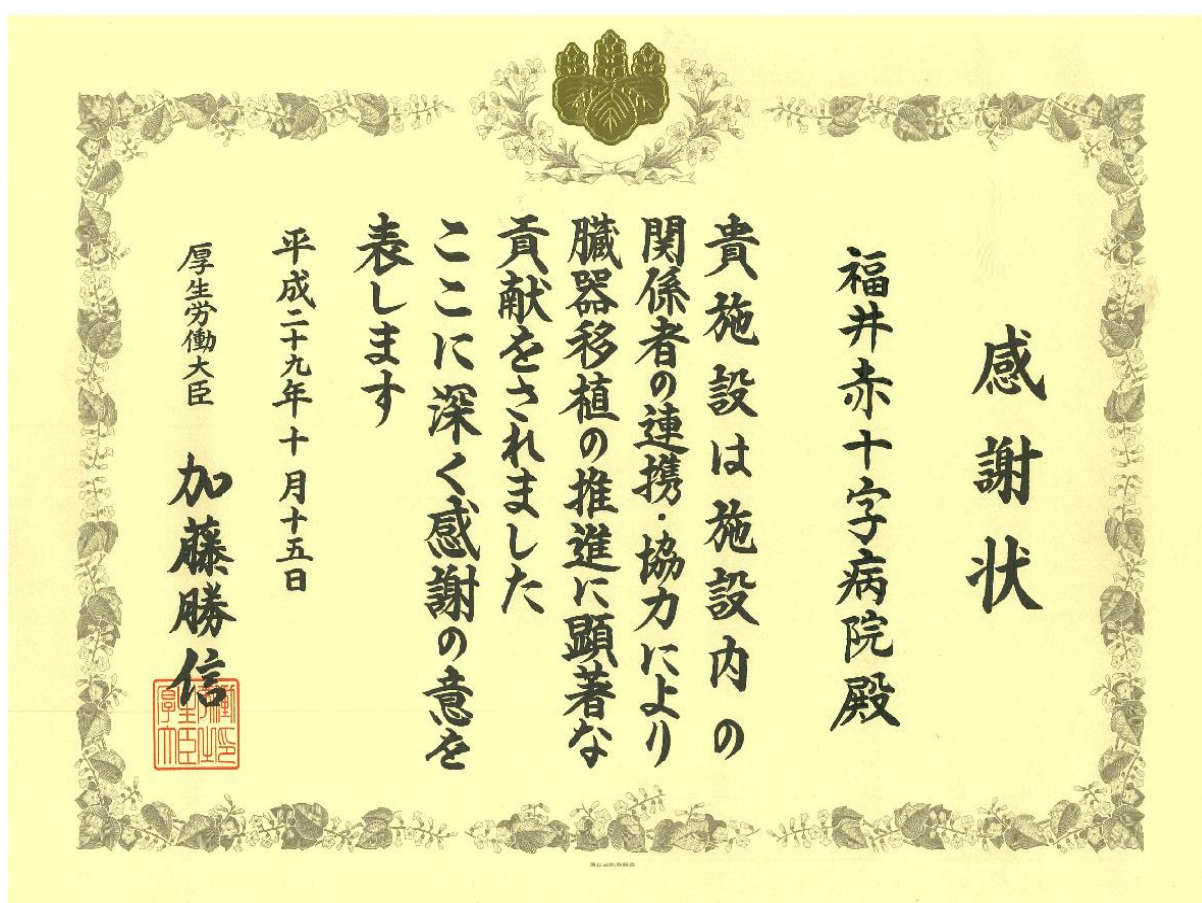 感謝状
福井赤十字病院殿
貴施設は施設内の
関係者の連携・協力により
臓器移植の推進に顕著な
貢献をされました
ここに深く感謝の意を
表します
平成二十九年十月十五日
厚生労働大臣 加藤勝信